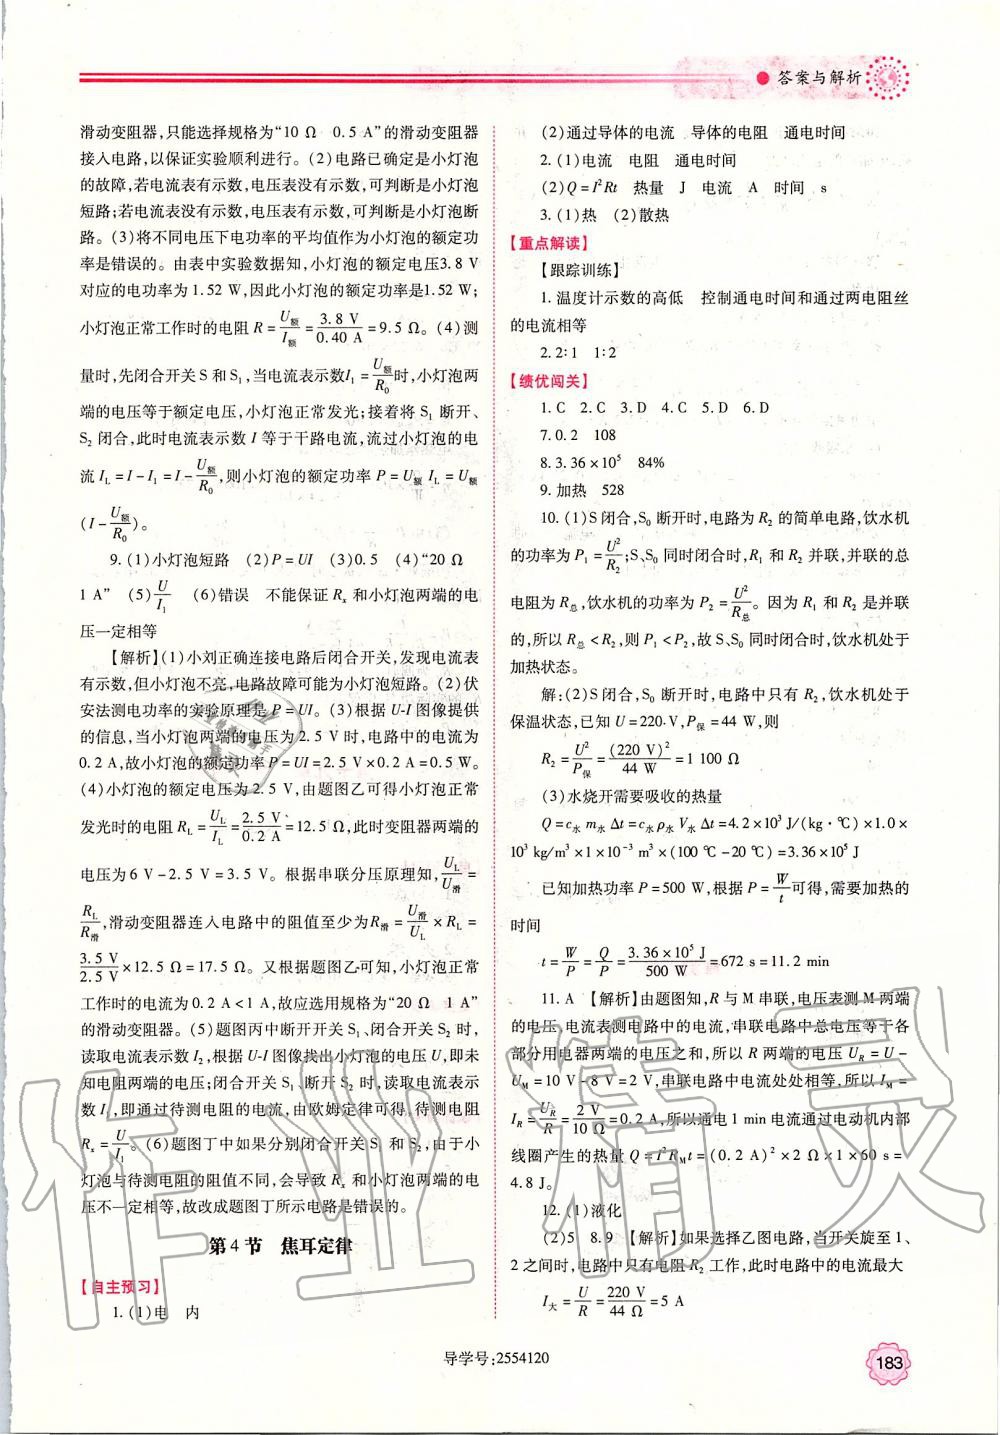 答案与解析
滑动变阻器,只能选择规格为“10 Ω　0.5 A”的滑动变阻器
接入电路,以保证实验顺利进行。(2)电路已确定是小灯泡
的故障,若电流表有示数,电压表没有示数,可判断是小灯泡
短路;若电流表没有示数,电压表有示数,可判断是小灯泡断
路。(3)将不同电压下电功率的平均值作为小灯泡的额定功
率是错误的。由表中实验数据知,小灯泡的额定电压3.8 V
对应的电功率为 1.52 W,因此小灯泡的额定功率为1.52 W;
小灯泡正常工作时的电阻 R=U额/I额=3.8 V/0.40 A=9.5 Ω。(4)测
量时,先闭合开关 S 和 S₁,当电流表示数I₁=U额/R₀时,小灯泡两
端的电压等于额定电压,小灯泡正常发光;接着将 S₁ 断开、
S₂ 闭合,此时电流表示数 I 等于干路电流,流过小灯泡的电
流 I_L=I-I₁=I-U额/R₀,则小灯泡的额定功率 P=U额 I_L=U额
(I-U额/R₀)。
9.(1)小灯泡短路　(2)P=UI　(3)0.5　(4)“20 Ω
1 A”　(5)U/I₁　(6)错误　不能保证 Rₓ 和小灯泡两端的电
压一定相等
【解析】(1)小刘正确连接电路后闭合开关,发现电流表
有示数,但小灯泡不亮,电路故障可能为小灯泡短路。(2)伏
安法测电功率的实验原理是 P=UI。(3)根据 U-I 图像提供
的信息,当小灯泡两端的电压为 2.5 V 时,电路中的电流为
0.2 A,故小灯泡的额定功率 P=UI=2.5 V×0.2 A=0.5 W。
(4)小灯泡的额定电压为 2.5 V,由题图乙可得小灯泡正常
发光时的电阻 R_L=U_L/I_L=2.5 V/0.2 A=12.5 Ω,此时变阻器两端的
电压为6 V-2.5 V=3.5 V。根据串联分压原理知,U_L/U滑=
R_L/R滑,滑动变阻器连入电路中的阻值至少为R滑=U滑/U_L×R_L=
3.5 V/2.5 V×12.5 Ω=17.5 Ω。又根据题图乙可知,小灯泡正常
工作时的电流为 0.2 A<1 A,故应选用规格为“20 Ω　1 A”
的滑动变阻器。(5)题图丙中断开开关 S₁、闭合开关 S₂ 时,
读取电流表示数 I₂,根据 U-I 图像找出小灯泡的电压 U,即未
知电阻两端的电压;闭合开关 S₁、断开 S₂ 时,读取电流表示
数 I₁,即通过待测电阻的电流,由欧姆定律可得,待测电阻
Rₓ=U/I₁。(6)题图丁中如果分别闭合开关 S₁ 和 S₂,由于小
灯泡与待测电阻的阻值不同,会导致 Rₓ 和小灯泡两端的电
压不一定相等,故改成题图丁所示电路是错误的。
第 4 节　焦耳定律
【自主预习】
1.(1)电　内
(2)通过导体的电流　导体的电阻　通电时间
2.(1)电流　电阻　通电时间
(2)Q=I²Rt　热量　J　电流　A　时间　s
3.(1)热　(2)散热
【重点解读】
【跟踪训练】
1.温度计示数的高低　控制通电时间和通过两电阻丝
的电流相等
2.2∶1　1∶2
【绩优闯关】
1.C　2.C　3.D　4.C　5.D　6.D
7.0.2　108
8.3.36×10⁵　84%
9.加热　528
10.(1)S 闭合,S₀ 断开时,电路为 R₂ 的简单电路,饮水机
的功率为 P₁=U²/R₂;S、S₀ 同时闭合时,R₁ 和 R₂ 并联,并联的总
电阻为 R总,饮水机的功率为 P₂=U²/R总。因为 R₁ 和 R₂ 是并联
的,所以 R总<R₂,则 P₁<P₂,故 S、S₀ 同时闭合时,饮水机处于
加热状态。
解:(2)S 闭合,S₀ 断开时,电路中只有 R₂,饮水机处于
保温状态,已知 U=220 V,P保=44 W,则
R₂=U²/P保=(220 V)²/44 W=1 100 Ω
(3)水烧开需要吸收的热量
Q=c水 m水 Δt=c水ρ水 V水 Δt=4.2×10³ J/(kg·℃)×1.0×
10³ kg/m³×1×10⁻³ m³×(100 ℃-20 ℃)=3.36×10⁵ J
已知加热功率 P=500 W,根据 P=W/t可得,需要加热的
时间
t=W/P=Q/P=3.36×10⁵ J/500 W=672 s=11.2 min
11.A　【解析】由题图知,R 与 M 串联,电压表测 M 两端
的电压,电流表测电路中的电流,串联电路中总电压等于各
部分用电器两端的电压之和,所以 R 两端的电压 U_R=U-
U_M=10 V-8 V=2 V,串联电路中电流处处相等,所以 I_M=
I_R=U_R/R=2 V/10 Ω=0.2 A,所以通电 1 min 电流通过电动机内部
线圈产生的热量 Q=I²R_Mt=(0.2 A)²×2 Ω×1×60 s=
4.8 J。
12.(1)液化
(2)5　8.9　【解析】如果选择乙图电路,当开关旋至 1、
2 之间时,电路中只有电阻 R₂ 工作,此时电路中的电流最大
I大=U/R=220 V/44 Ω=5 A
导学号:2554120
183
作业精灵